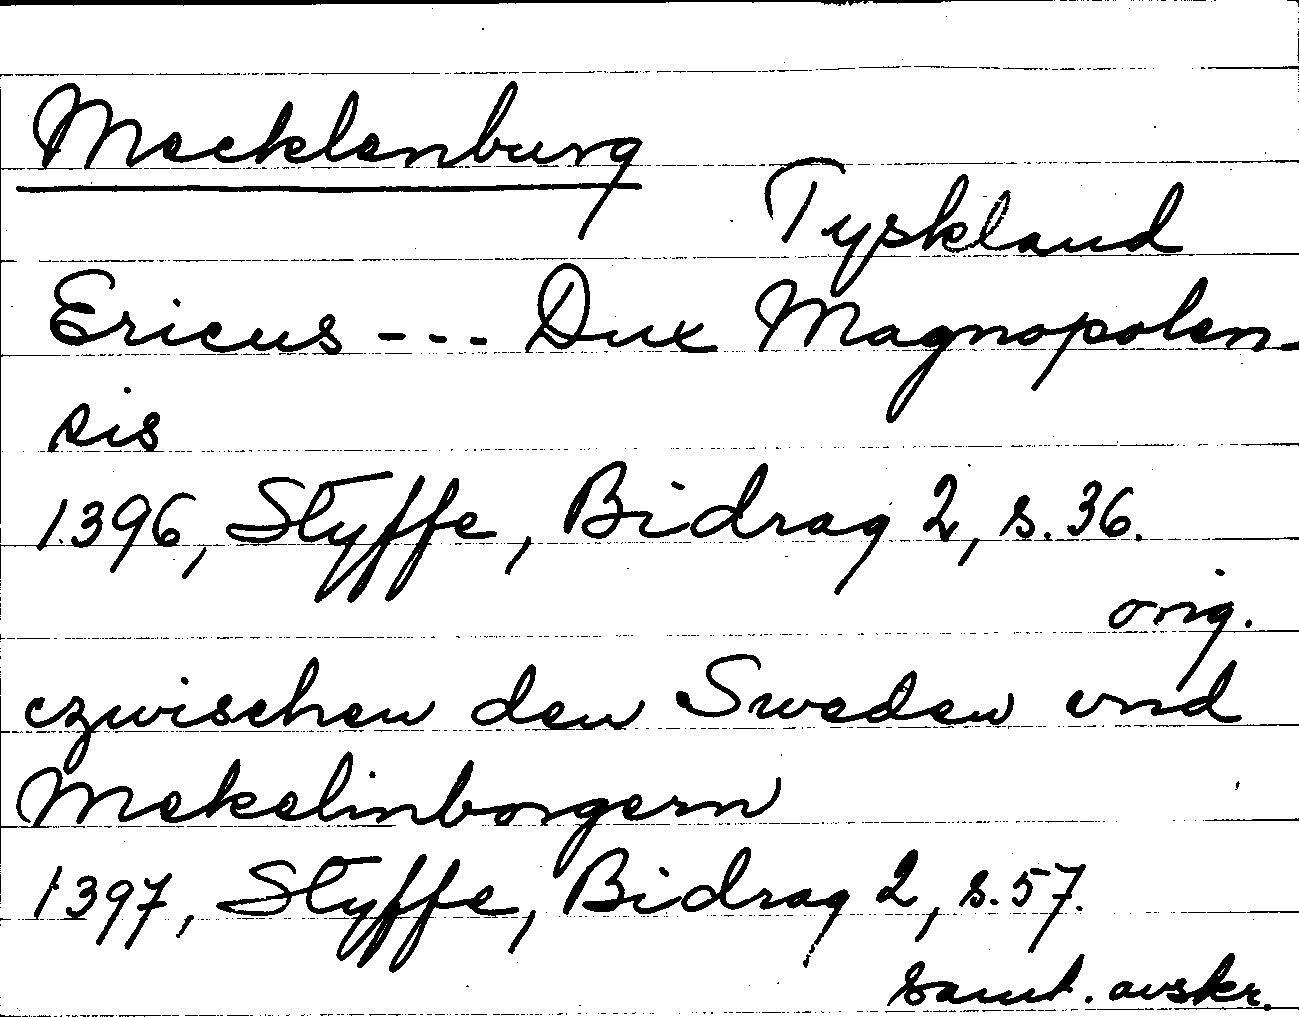 Mecklenburg
Tyskland
Ericus --- Dux Magnopolen-
sis
1396, Styffe, Bidrag 2, s. 36.
orig.
czwischen den Sweden vnd
Mekelinborgern
1397, Styffe, Bidrag 2, s. 57.
samt. avskr.